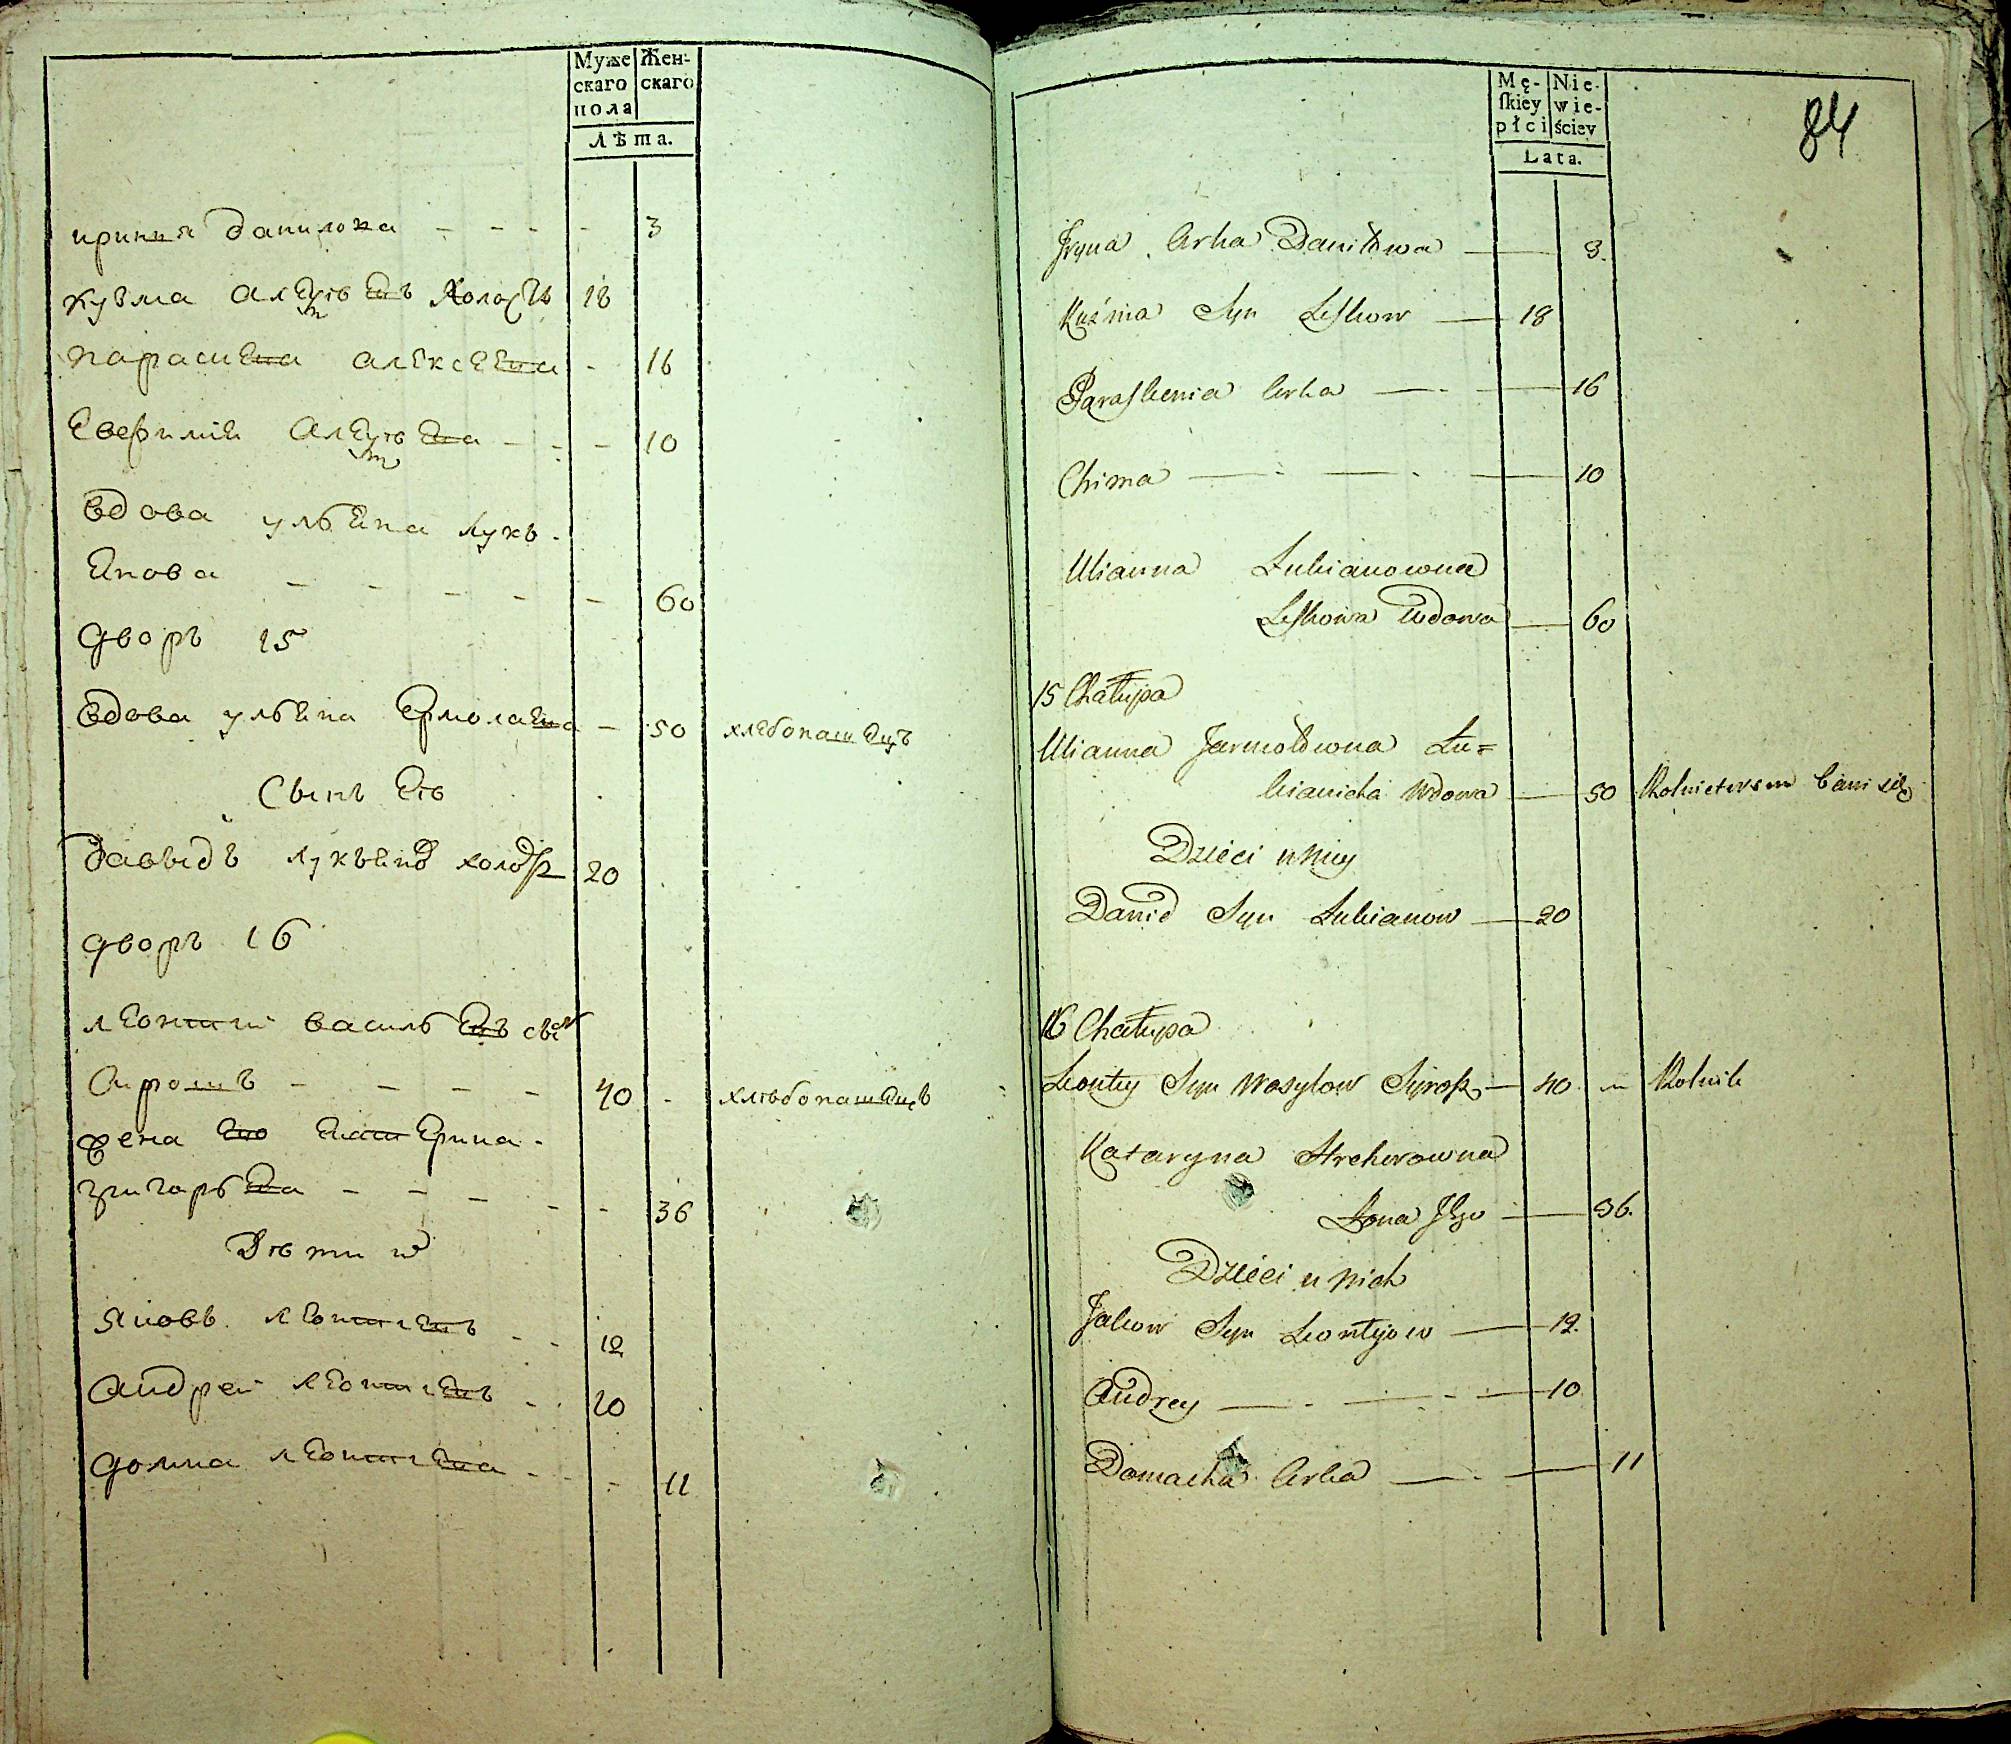 Муже
скаго
пола
Жен-
скаго
Лѣта.
ирина данилова - - - - 3
кузма алексѣевъ холостъ 18
парасцева алексеева - 16
Евфимія алексѣева - - - 10
вдова ульяна лукь-
янова - - - - - 60
дворъ 15
вдова ульяна Ермолаева - 50 хлебопашецъ
Сынъ Ея
давыдъ лукьяновъ холостъ 20
дворъ 16
леонтии василь евъ сынъ
Сиротъ - - - - 40 - хлѣбопашецъ
жена Ево Екатерина
григорьева - - - - - 36
Дѣти их
яковъ леонтиевъ - - 12
андрей леонтиевъ - - 10
домна леонтиева - - - 11
Mę-
skiey
płci
Nie-
wie-
ściey
Lata.
84
Iryna Crka Daniłowa — 3.
Kuźma Syn Leskow — 18
Paraskewia Crka — - — 16
Chima — - — - — 10
Ulianna Lukianowna
Leskowa Wdowa — 60
15 Chałupa
Ulianna Jarmołowna Łu=
kianicha Wdowa — 50 Rolnictwem bawi się
Dzieci u niey
Dawid Syn Lukianow — 20
16 Chałupa
Leontey Syn Wasylow — 40 Rolnik
Kataryna Hrehorowna
Żona Jego — 36.
Dzieci u nich
Jakow Syn Leontjow — 12.
Andrey — - — - — 10
Domacha Crka — - — 11